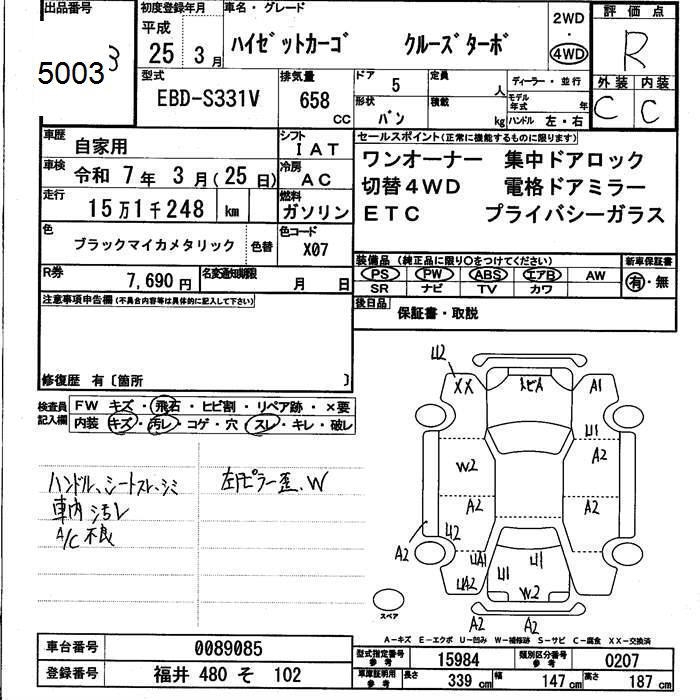 出品番号
5003
初度登録年月
平成
25 3月
車名・グレード
ハイゼットカーゴ クルーズターボ
2WD
・
4WD
評価点
R
外装 内装
C C
型式
EBD-S331V
排気量
658
CC
ドア 5
形状 バン
定員 人
積載 kg
ディーラー・並行
モデル年式 年
ハンドル 左・右
車歴 自家用
シフト IAT
車検 令和 7年 3月(25日)
冷房 AC
走行 15万1千248 km
燃料 ガソリン
色 ブラックマイカメタリック 色替
色コード X07
R券 7,690円
名変通知期限 月 日
セールスポイント(正常に機能するものに限ります)
ワンオーナー 集中ドアロック
切替4WD 電格ドアミラー
ETC プライバシーガラス
装備品(純正品に限り〇をつけてください)
PS PW ABS エアB AW
SR ナビ TV カワ
新車保証書
有・無
後日品 保証書・取説
注意事項申告欄(不具合内容等は具体的に記入して下さい)
修復歴 有〔箇所 〕
検査員記入欄
FW キズ・飛石・ヒビ割・リペア跡・×要
内装 キズ・汚レ・コゲ・穴・スレ・キレ・破レ
ハンドル、シートスレ、シミ
車内 汚レ
A/C 不良
左Fピラー歪、W
U2
XX
A1
U1
A2
W2
A2
A2
U2
A2
UA1
U1
U1
UA2
W2
A2 A2
スペア
A-キズ E-エクボ U-凹み W-補修跡 S-サビ C-腐食 XX-交換済
車台番号 0089085
登録番号 福井 480 そ 102
型式指定番号 参考 15984
類別区分番号 参考 0207
車庫証明用 参考 長さ 339cm 幅 147cm 高さ 187cm